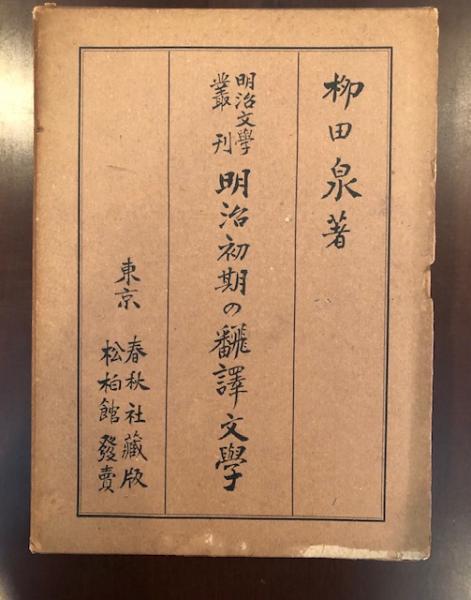 柳田泉著
明治文學
叢刊
明治初期の飜譯文學
東京
春秋社藏版
松柏館發賣